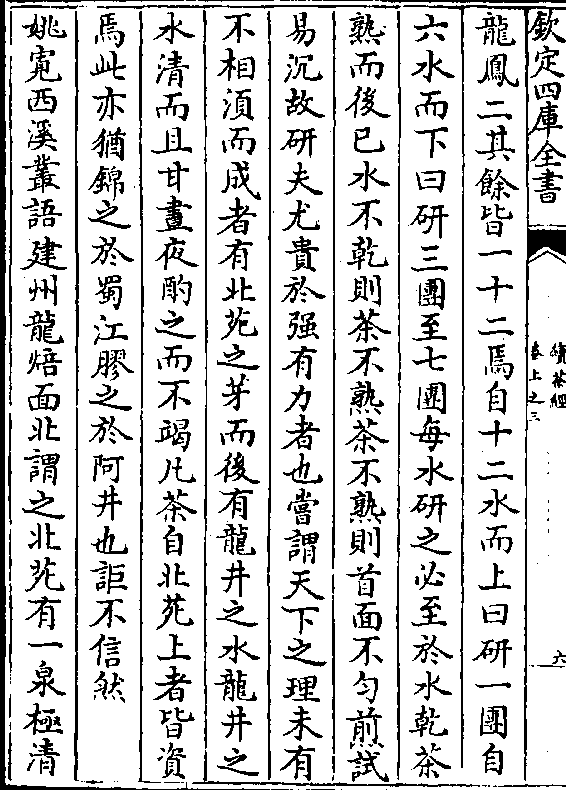 欽定四庫全書
續茶經
卷上之三
六
龍鳳二其餘皆一十二焉自十二水而上曰研一團自
六水而下曰研三團至七團每水研之必至於水乾茶
熟而後已水不乾則茶不熟茶不熟則首面不勻煎試
易沉故研夫尤貴於强有力者也嘗謂天下之理未有
不相湏而成者有北苑之芽而後有龍井之水龍井之
水清而且甘晝夜酌之而不竭凡茶自北苑上者皆資
焉此亦猶錦之於蜀江膠之於阿井也詎不信然
姚寛西溪叢語建州龍焙面北謂之北苑有一泉極清